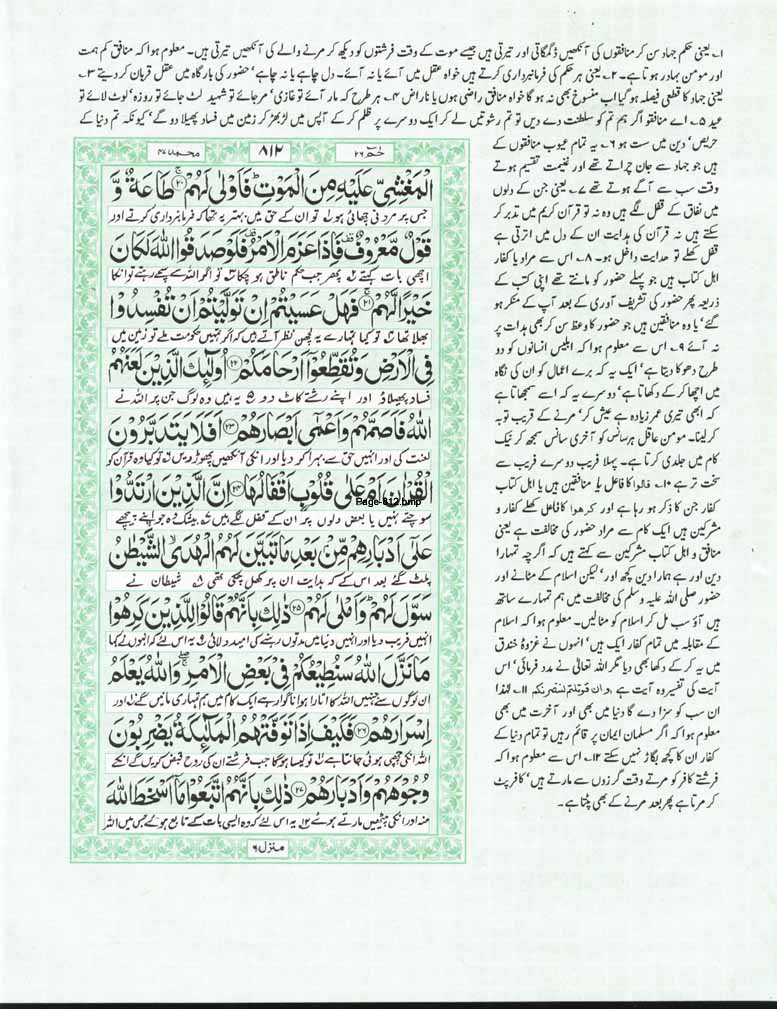 ۱۔ یعنی حکم جہاد سن کر منافقوں کی آنکھیں ڈگمگاتی اور تیرتی ہیں جیسے موت کے وقت فرشتوں کو دیکھ کر مرنے والے کی آنکھیں تیرتی ہیں۔ معلوم ہوا کہ منافق کم ہمت
اور مومن بہادر ہوتا ہے۔ ۲۔ یعنی ہر حکم کی فرمانبرداری کرتے ہیں خواہ عقل میں آئے یا نہ آئے۔ دل چاہے یا نہ چاہے' حضور کی بارگاہ میں عقل قربان کر دیتے ۳۔
یعنی جہاد کا قطعی فیصلہ ہو گیا اب منسوخ بھی نہ ہو گا خواہ منافق راضی ہوں یا ناراض ۴۔ ہر طرح کہ مار آئے تو غازی' مر جائے تو شہید لٹ جائے تو روزہ' لوٹ لائے تو
عید ۵۔ اے منافقو اگر ہم تم کو سلطنت دے دیں تو تم رشوتیں لے کر ایک دوسرے پر ظلم کر کے آپس میں لڑ بھڑ کر زمین میں فساد پھیلا دو گے' کیونکہ تم دنیا کے
حریص' دین میں ست ہو ۶۔ یہ تمام عیوب منافقوں کے
ہیں جو جہاد سے جان چراتے تھے اور غنیمت تقسیم ہوتے
وقت سب سے آگے ہوتے تھے ۷۔ یعنی جن کے دلوں
میں نفاق کے قفل لگے ہیں وہ نہ تو قرآن کریم میں تدبر کر
سکتے ہیں نہ قرآن کی ہدایت ان کے دل میں اترتی ہے
قفل کھلے تو ہدایت داخل ہو۔ ۸۔ اس سے مراد یا کفار
اہل کتاب ہیں جو پہلے حضور کو مانتے تھے اپنی کتب کے
ذریعہ پھر حضور کی تشریف آوری کے بعد آپ کے منکر ہو
گئے' یا وہ منافقین ہیں جو حضور کا وعظ سن کر بھی ہدایت پر
نہ آئے ۹۔ اس سے معلوم ہوا کہ ابلیس انسانوں کو دو
طرح دھوکا دیتا ہے' ایک یہ کہ برے اعمال کو ان کی نگاہ
میں اچھا کر کے دکھاتا ہے' دوسرے یہ کہ اسے سمجھاتا ہے
کہ ابھی تیری عمر زیادہ ہے عیش کر' مرنے کے قریب توبہ
کر لینا۔ مومن عاقل ہر سانس کو آخری سانس سمجھ کر نیک
کام میں جلدی کرتا ہے۔ پہلا فریب دوسرے فریب سے
سخت تر ہے ۱۰۔ قالوا کا فاعل یا منافقین ہیں یا اہل کتاب
کفار جن کا ذکر ہو رہا ہے اور کرھوا کا فاعل کھلے کفار و
مشرکین ہیں ایک کام سے مراد حضور کی مخالفت ہے یعنی
منافق و اہل کتاب مشرکین سے کہتے ہیں کہ اگرچہ تمہارا
دین اور ہے ہمارا دین کچھ اور' لیکن اسلام کے مٹانے اور
حضور صلی اللہ علیہ وسلم کی مخالفت میں ہم تمہارے ساتھ
ہیں آؤ سب مل کر اسلام کو مٹالیں۔ معلوم ہوا کہ اسلام
کے مقابلہ میں تمام کفار ایک ہیں' انہوں نے غزوۂ خندق
میں یہ کر کے دکھا بھی دیا مگر اللہ تعالیٰ نے مدد فرمائی' اس
آیت کی تفسیر وہ آیت ہے وان قوتلتم لننصرنکم ۱۱۔ لہٰذا
ان سب کو سزا دے گا دنیا میں بھی اور آخرت میں بھی
معلوم ہوا کہ اگر مسلمان ایمان پر قائم رہیں تو تمام دنیا کے
کفار ان کا کچھ بگاڑ نہیں سکتے ۱۲۔ اس سے معلوم ہوا کہ
فرشتے کافر کو مرتے وقت گرزوں سے مارتے ہیں' کافر پٹ
کر مرتا ہے پھر بعد مرنے کے بھی پٹتا ہے۔
حٰمٓ ۲۶ ۸۱۲ محمد ۴۷
الْمَغْشِیِّ عَلَیْهِ مِنَ الْمَوْتِ ؕ فَاَوْلٰى لَهُمْ ۚ۲۰ طَاعَةٌ وَّ
جس پر مردنی چھائی ہو ۱ تو ان کے حق میں بہتر یہ تھا کہ فرمانبرداری کرتے اور
قَوْلٌ مَّعْرُوْفٌ ۫ فَاِذَا عَزَمَ الْاَمْرُ ۫ فَلَوْ صَدَقُوا اللّٰهَ لَكَانَ
اچھی بات کہتے ۲ پھر جب حکم ناطق ہو چکا ۳ تو اگر اللہ سے سچے رہتے تو انکا
خَیْرًا لَّهُمْ ۚ۲۱ فَهَلْ عَسَیْتُمْ اِنْ تَوَلَّیْتُمْ اَنْ تُفْسِدُوْا
بھلا تھا ۴ تو کیا تمہارے یہ لچھن نظر آتے ہیں کہ اگر تمہیں حکومت ملے تو زمین میں
فِی الْاَرْضِ وَ تُقَطِّعُوْۤا اَرْحَامَكُمْ ۲۲ اُولٰٓىٕكَ الَّذِیْنَ لَعَنَهُمُ
فساد پھیلاؤ اور اپنے رشتے کاٹ دو ۵ یہ ہیں وہ لوگ جن پر اللہ نے
اللّٰهُ فَاَصَمَّهُمْ وَ اَعْمٰۤى اَبْصَارَهُمْ ۲۳ اَفَلَا یَتَدَبَّرُوْنَ
لعنت کی اور انہیں حق سے بہرا کر دیا اور انکی آنکھیں پھوڑ دیں ۶ تو کیا وہ قرآن کو
الْقُرْاٰنَ اَمْ عَلٰى قُلُوْبٍ اَقْفَالُهَا ۲۴ اِنَّ الَّذِیْنَ ارْتَدُّوْا
Page-812.bmp
سوچتے نہیں یا بعض دلوں پر ان کے قفل لگے ہیں ۷ بیشک وہ جو اپنے پیچھے
عَلٰۤى اَدْبَارِهِمْ مِّنْۢ بَعْدِ مَا تَبَیَّنَ لَهُمُ الْهُدَى ۙ الشَّیْطٰنُ
پلٹ گئے بعد اس کے کہ ہدایت ان پر کھل چکی تھی ۸ شیطان نے
سَوَّلَ لَهُمْ ؕ وَ اَمْلٰى لَهُمْ ۲۵ ذٰلِكَ بِاَنَّهُمْ قَالُوْا لِلَّذِیْنَ كَرِهُوْا
انہیں فریب دیا اور انہیں دنیا میں مدتوں رہنے کی امید دلائی ۹ یہ اس لئے کہ انہوں نے کہا
مَا نَزَّلَ اللّٰهُ سَنُطِیْعُكُمْ فِیْ بَعْضِ الْاَمْرِ ۚۖ وَ اللّٰهُ یَعْلَمُ
ان لوگوں سے جنہیں اللہ کا اتارا ہوا ناگوار ہے ایک کام میں ہم تمہاری مانیں گے ۱۰ اور
اِسْرَارَهُمْ ۲۶ فَكَیْفَ اِذَا تَوَفَّتْهُمُ الْمَلٰٓىٕكَةُ یَضْرِبُوْنَ
اللہ انکی چھپی ہوئی جانتا ہے ۱۱ تو کیسا ہو گا جب فرشتے ان کی روح قبض کریں گے انکے
وُجُوْهَهُمْ وَ اَدْبَارَهُمْ ۲۷ ذٰلِكَ بِاَنَّهُمُ اتَّبَعُوْا مَاۤ اَسْخَطَ اللّٰهَ
منہ اور انکی پیٹھیں مارتے ہوئے ۱۲ یہ اس لئے کہ وہ ایسی بات کے تابع ہوئے جس میں اللہ
منزل ۶